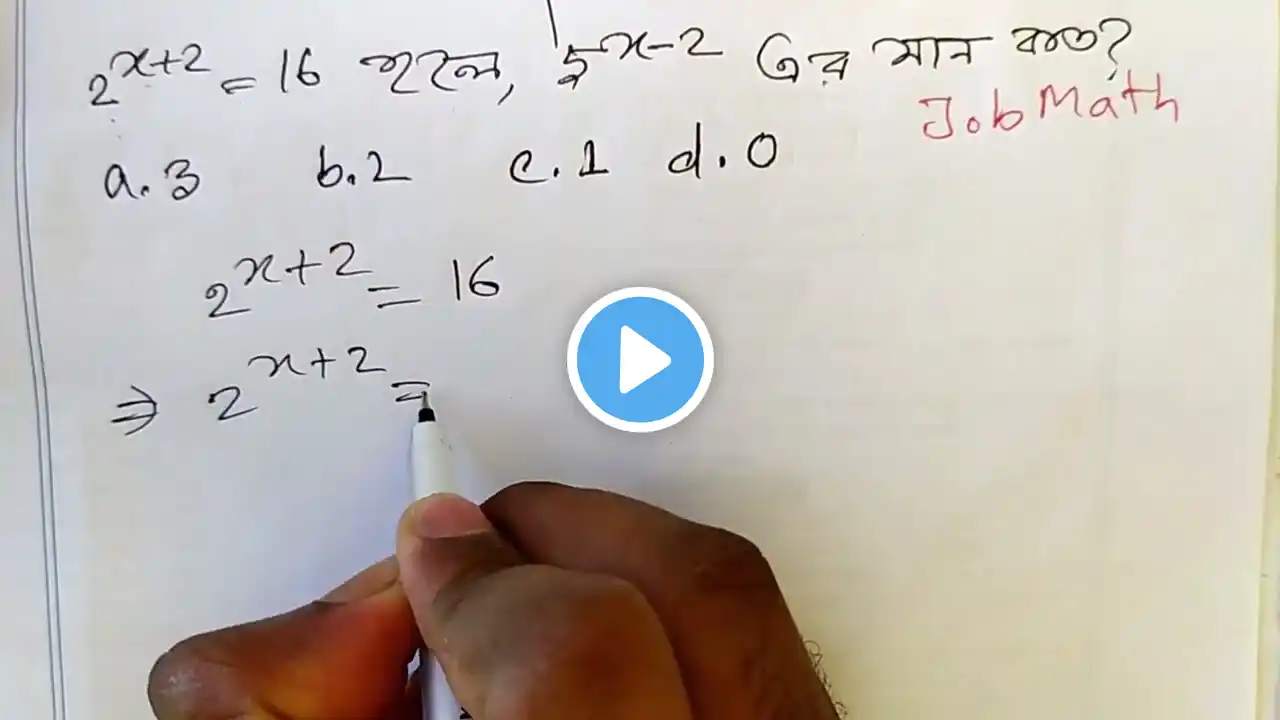 2^{x+2} = 16 হলে, 5^{x-2} এর মান কত?
Job Math
a. 3 b. 2 c. 1 d. 0
2^{x+2} = 16
⇒ 2^{x+2} =